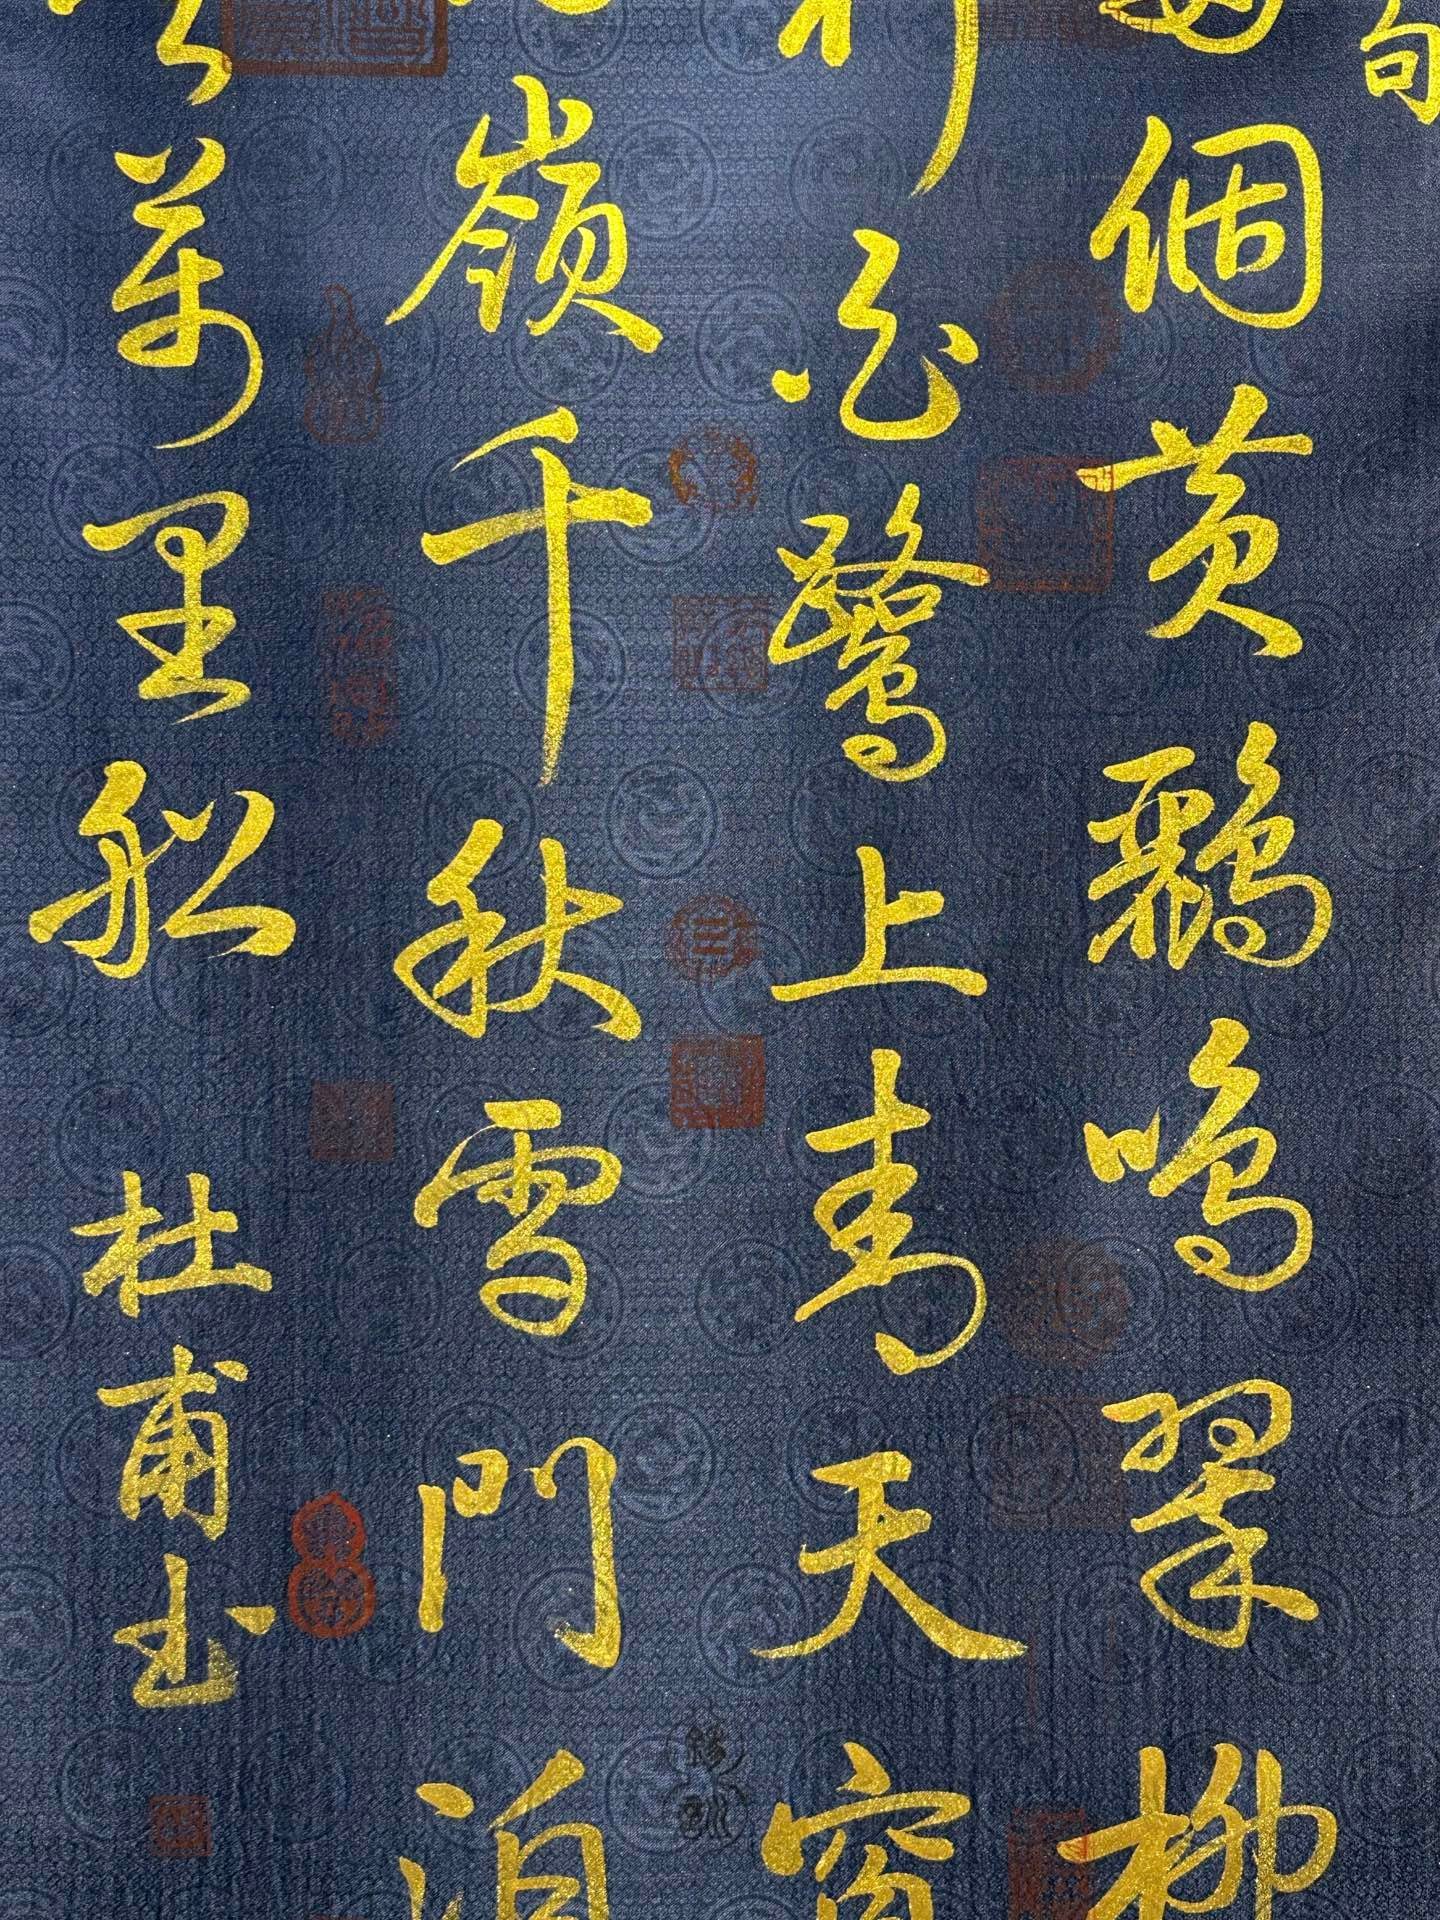 句
個黃鸝鳴翠柳
行白鷺上青天窗
嶺千秋雪門泊
萬里船 杜甫